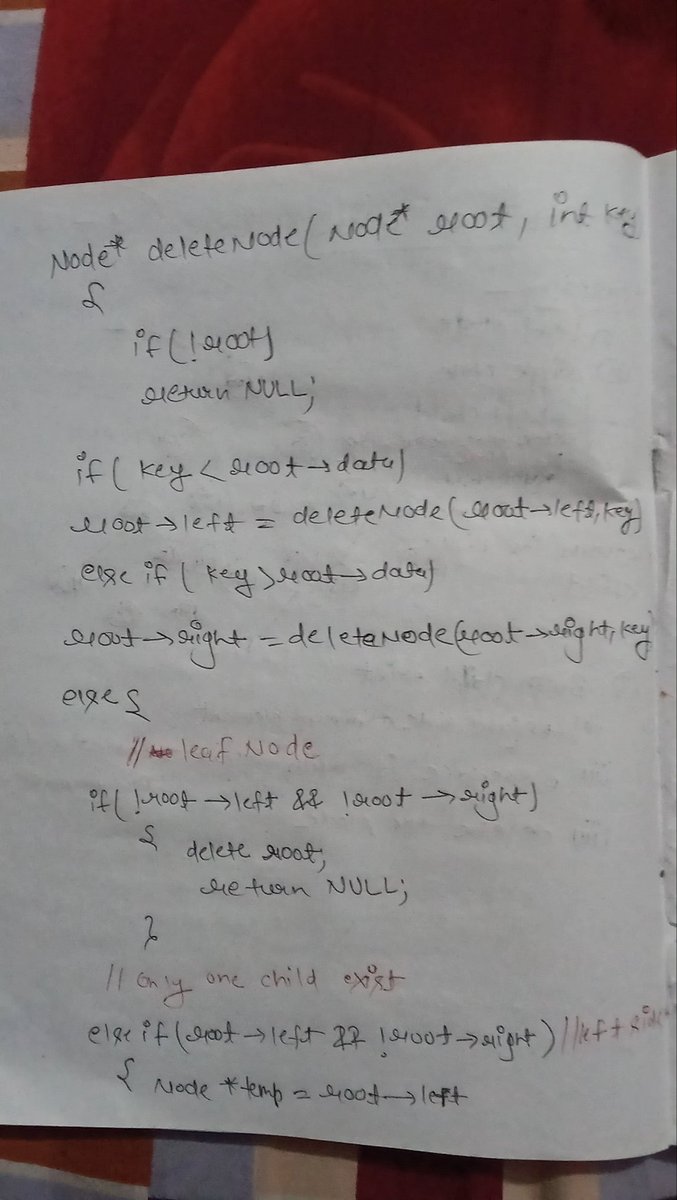 Node* deleteNode(Node* root, int key
{
if(!root)
return NULL;
if( key < root→data)
root→left = deleteNode(root→left, key)
else if( key>root→data)
root→right = deleteNode(root→right, key
else {
// leaf Node
if( !root→left && !root→right)
{ delete root;
return NULL;
}
// Only one child exist
else if(root→left && !root→right) //left side
{ Node *temp = root→left